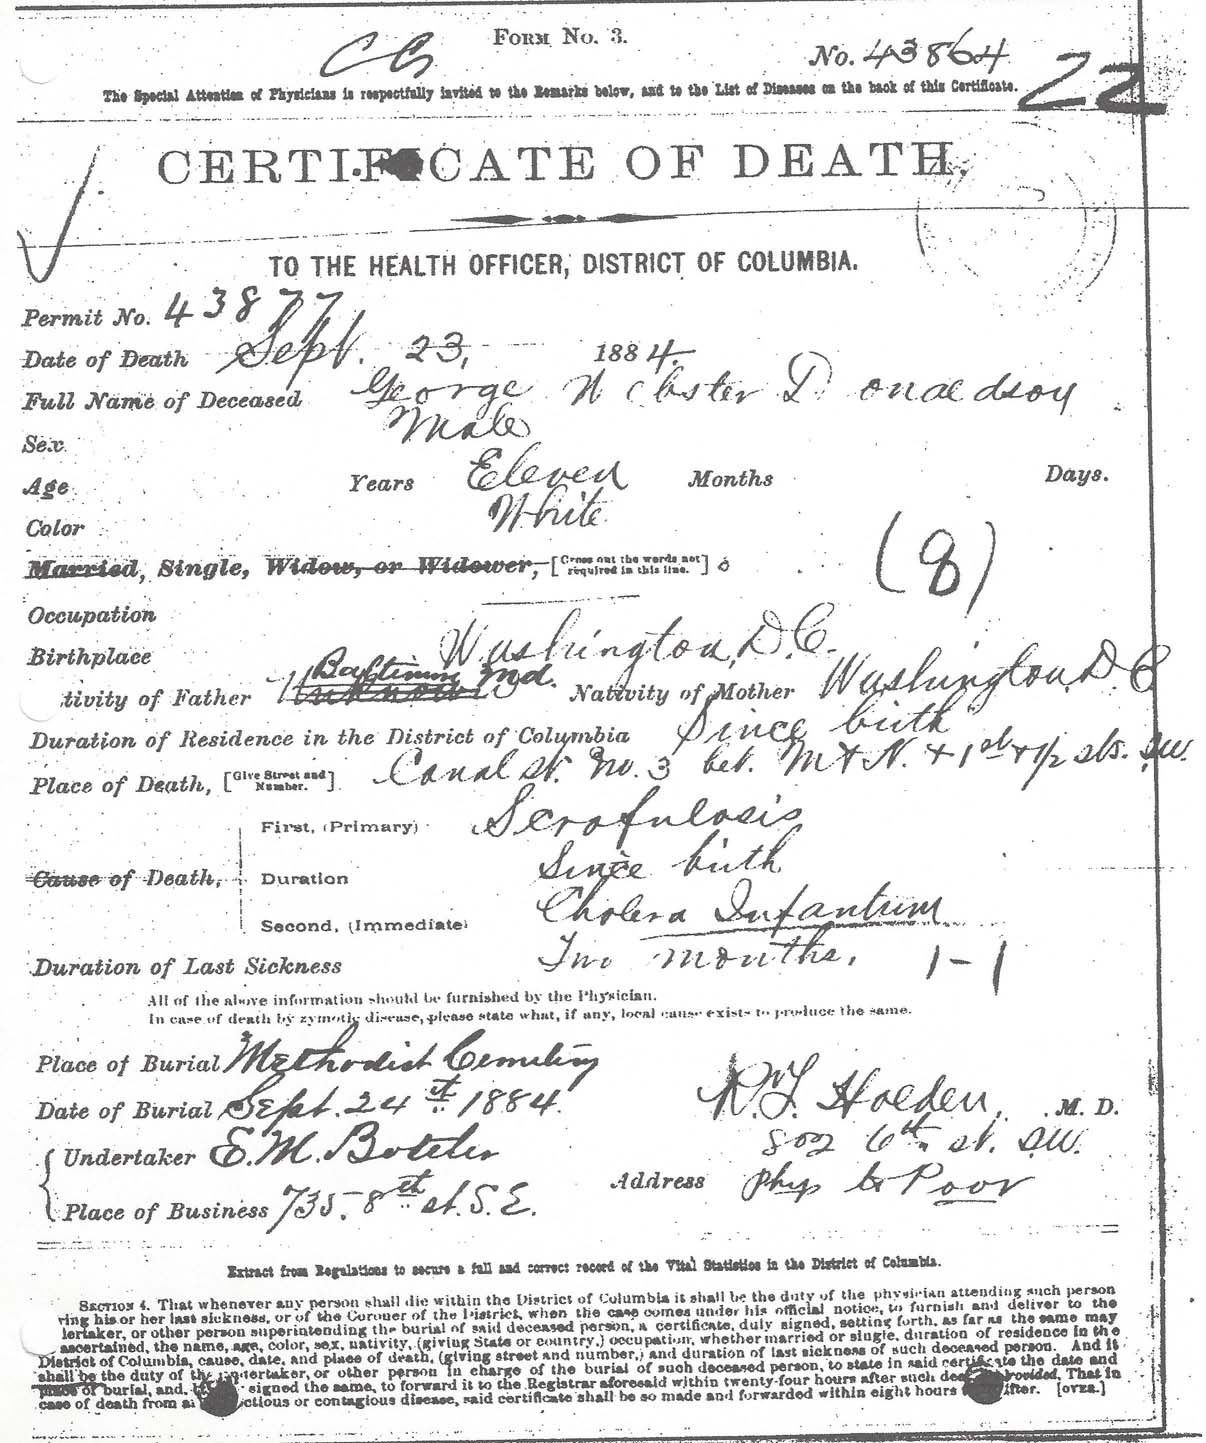 Form No. 3.
CG
No. 43864
22
The Special Attention of Physicians is respectfully invited to the Remarks below, and to the List of Diseases on the back of this Certificate.
CERTIFICATE OF DEATH.
TO THE HEALTH OFFICER, DISTRICT OF COLUMBIA.
Permit No. 43877
Date of Death Sept. 23, 1884.
Full Name of Deceased George Webster Donaldson
Sex Male
Age Years Eleven Months Days.
Color White
Married, Single, Widow, or Widower, [Cross out the words not required in this line.]
(8)
Occupation
Birthplace Washington, D.C.
tivity of Father Unknown Baltimore Md. Nativity of Mother Washington, D.C
Duration of Residence in the District of Columbia Since birth
Place of Death, [Give Street and Number.] Canal St. No. 3 bet. M & N. & 1st & 1/2 sts. S.W.
First, (Primary) Scrofulosis
Cause of Death, Duration Since birth
Second, (Immediate) Cholera Infantum
Duration of Last Sickness Two months. 1-1
All of the above information should be furnished by the Physician.
In case of death by zymotic disease, please state what, if any, local cause exists to produce the same.
Place of Burial Methodist Cemetery
Date of Burial Sept. 24th 1884.
R. T. Holden, M. D.
Undertaker E. M. Boteler
802 6th st. S.W.
Address Phys to Poor
Place of Business 735. 8th st. S.E.
Extract from Regulations to secure a full and correct record of the Vital Statistics in the District of Columbia.
Section 4. That whenever any person shall die within the District of Columbia it shall be the duty of the physician attending such person
ring his or her last sickness, or of the Coroner of the District, when the case comes under his official notice, to furnish and deliver to the
lertaker, or other person superintending the burial of said deceased person, a certificate, duly signed, setting forth, as far as the same may
ascertained, the name, age, color, sex, nativity, (giving State or country,) occupation, whether married or single, duration of residence in the
District of Columbia, cause, date, and place of death, (giving street and number,) and duration of last sickness of such deceased person. And it
shall be the duty of the undertaker, or other person in charge of the burial of such deceased person, to state in said certificate the date and
place of burial, and, signed the same, to forward it to the Registrar aforesaid within twenty-four hours after such death: Provided, That in
case of death from an ectious or contagious disease, said certificate shall be so made and forwarded within eight hours ifter. [over.]